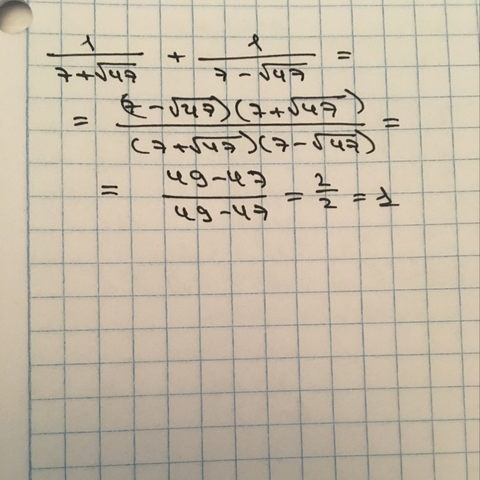 1/(7+√47) + 1/(7-√47) =
= (7-√47)(7+√47)/(7+√47)(7-√47) =
= 49-47/49-47 = 2/2 = 1